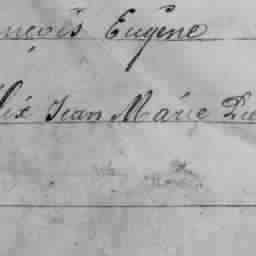 nçois Eugène
lix Jean Marie